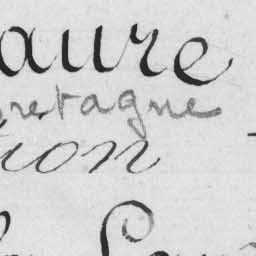 aure
retagne
ion